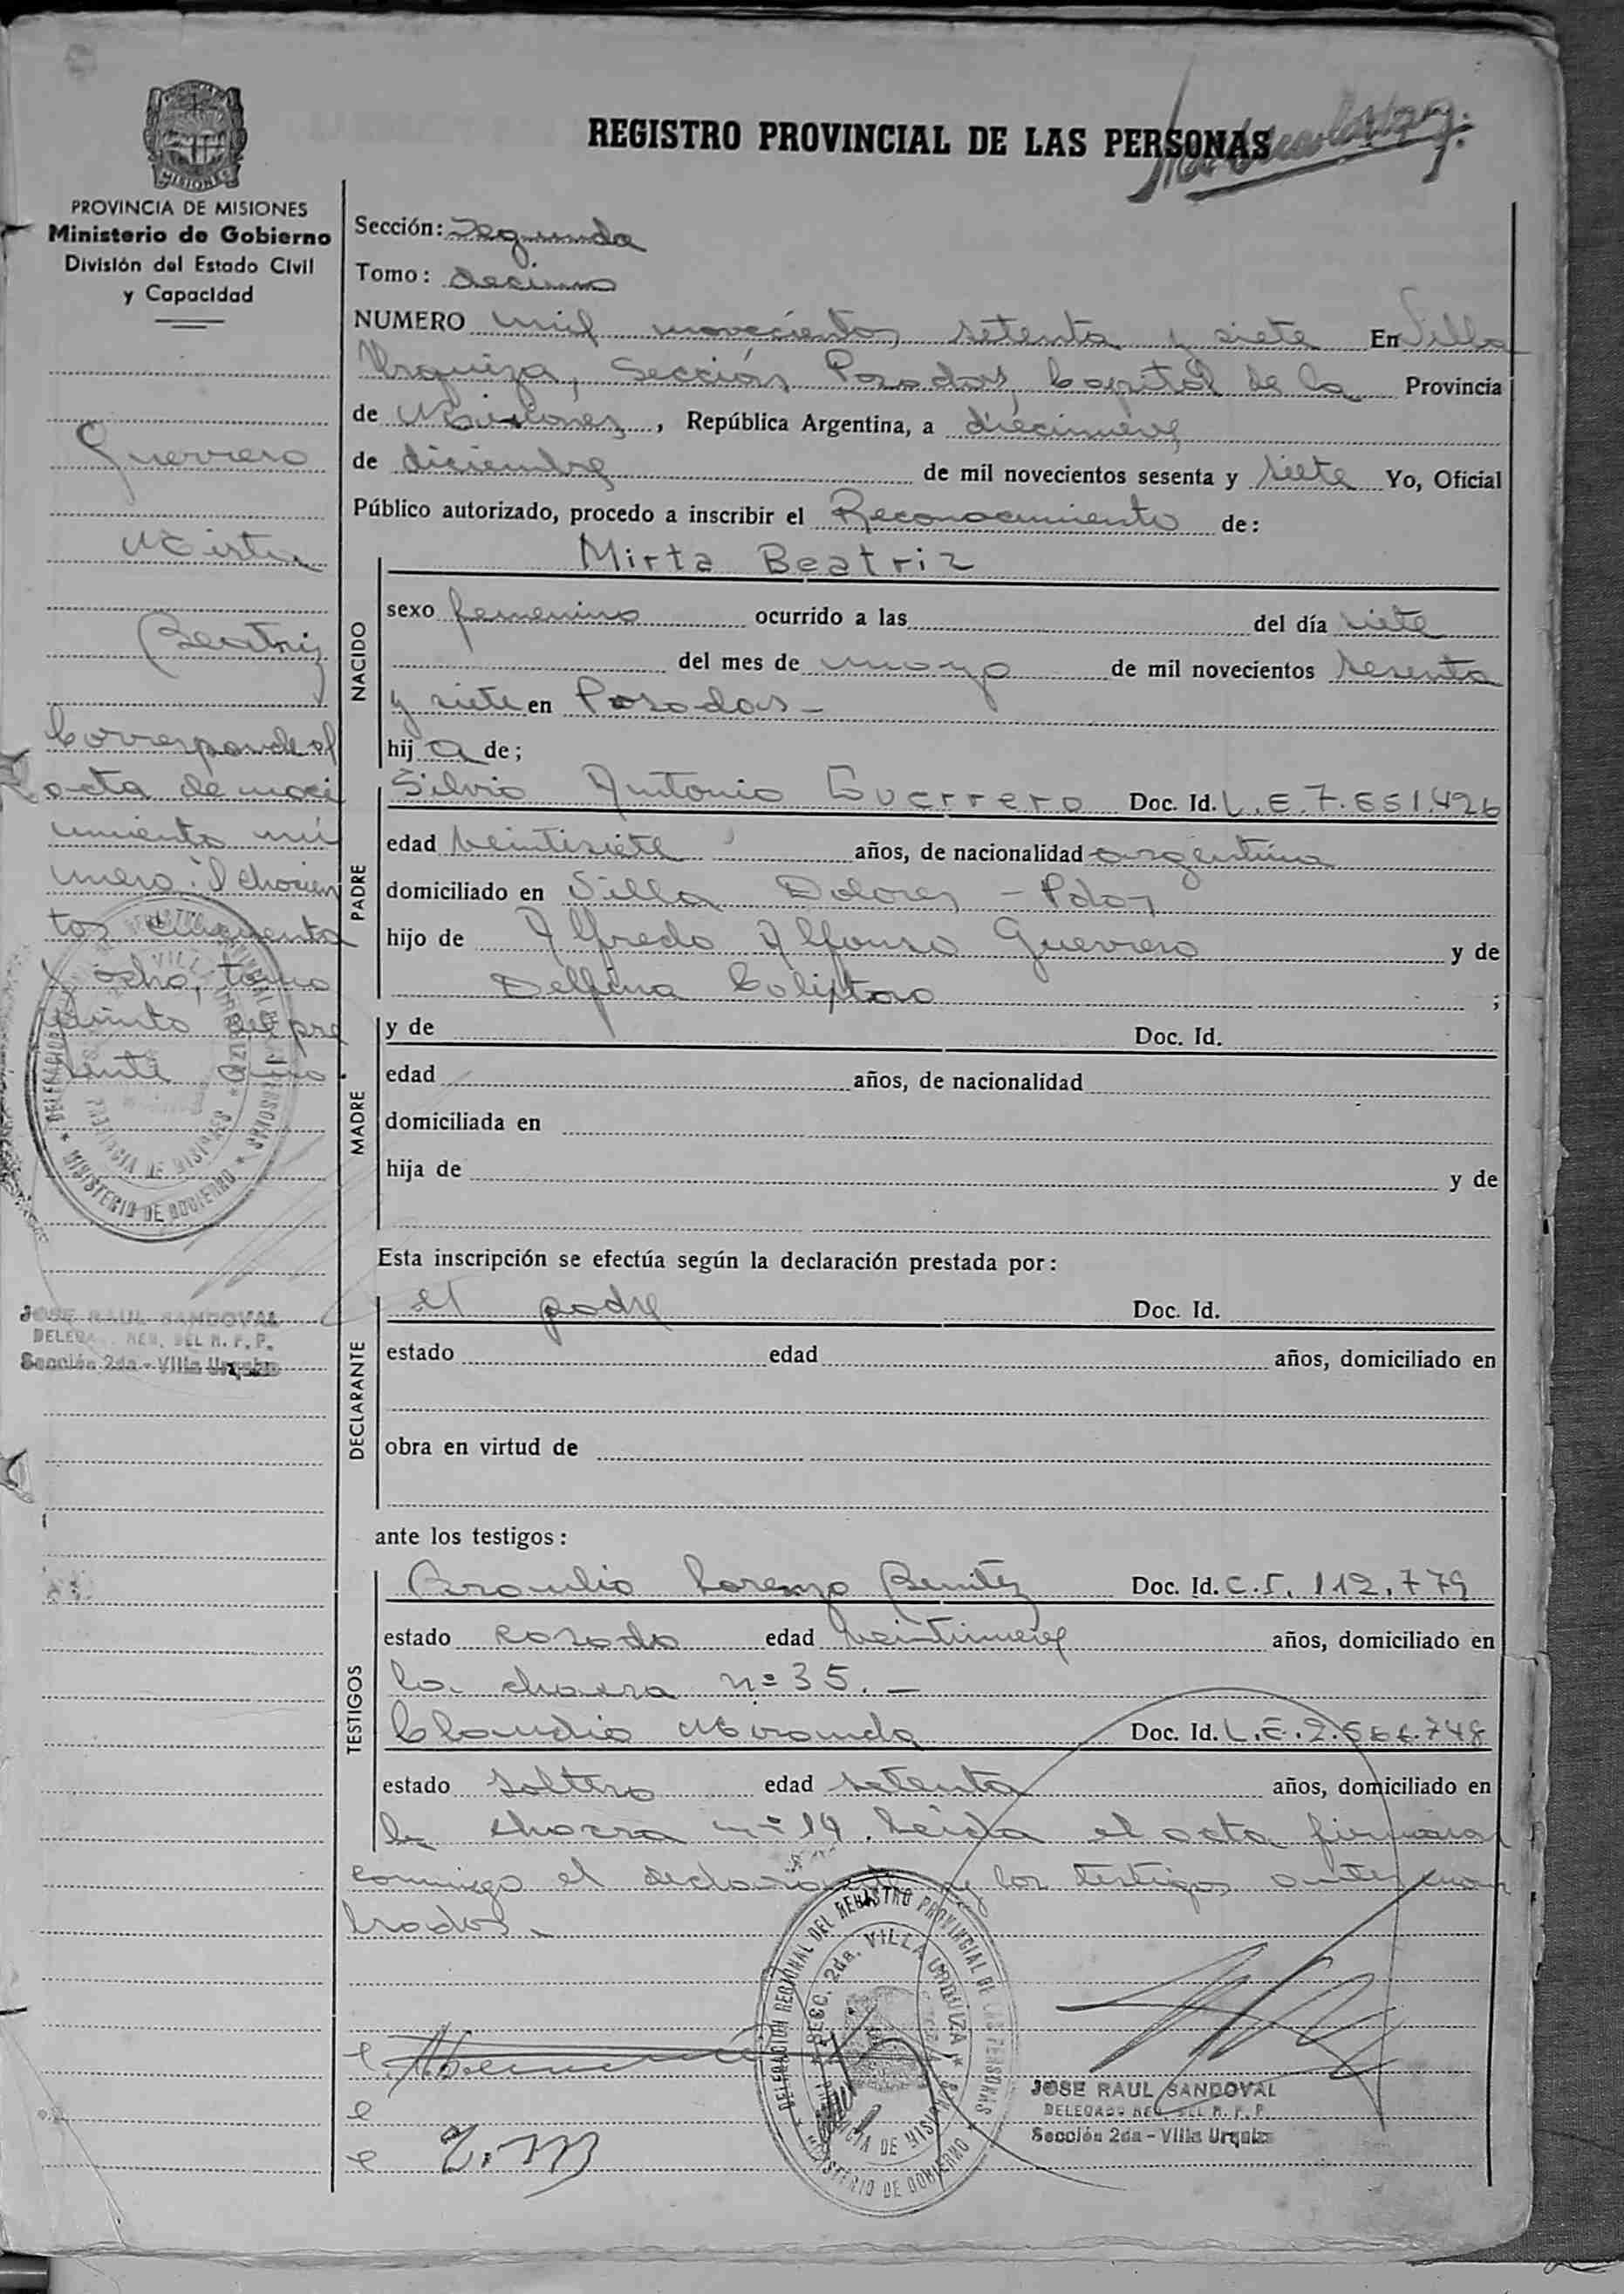 REGISTRO PROVINCIAL DE LAS PERSONAS
MISIONES
PROVINCIA DE MISIONES
Ministerio de Gobierno
División del Estado Civil
y Capacidad
Guerrero
Mirta
Beatriz
Corresponde al
acta de naci
miento nú
mero: Ochocien
tos cincuenta
y ocho, tomo
quinto del pre
sente año.
JOSE RAUL SANDOVAL
DELEGADO REG. DEL R. P. P.
Sección 2da - Villa Urquiza
Sección: Segunda
Tomo: decimo
NUMERO mil novecientos setenta y siete En Villa
Urquiza, Sección Posadas Capital de la Provincia
de Misiones, República Argentina, a diecinueve
de diciembre de mil novecientos sesenta y siete Yo, Oficial
Público autorizado, procedo a inscribir el Reconocimiento de:
NACIDO
Mirta Beatriz
sexo femenino ocurrido a las del día siete
del mes de mayo de mil novecientos sesenta
y siete en Posadas-
hij a de;
PADRE
Silvio Antonio Guerrero Doc. Id. L.E.7.651.426
edad veintisiete años, de nacionalidad argentina
domiciliado en Villa Dolores - Pdas
hijo de Alfredo Alfonso Guerrero y de
Delfina ;
MADRE
y de Doc. Id.
edad años, de nacionalidad
domiciliada en
hija de y de
Esta inscripción se efectúa según la declaración prestada por:
DECLARANTE
el padre Doc. Id.
estado edad años, domiciliado en
obra en virtud de
ante los testigos:
TESTIGOS
Braulio Lorenzo Benitez Doc. Id. C.I. 112.779
estado casado edad veintinueve años, domiciliado en
la chacra nº 35.-
Claudio Miranda Doc. Id. L.E.
estado soltero edad setenta años, domiciliado en
la chacra nº 19. Leida el acta firmaron
conmigo el declarante y los testigos antes nom
brados.-
DELEGACION REGIONAL DEL REGISTRO PROVINCIAL DE LAS PERSONAS
SECC. 2da. VILLA URQUIZA
PROVINCIA DE MISIONES
MINISTERIO DE GOBIERNO
JOSE RAUL SANDOVAL
DELEGADO REG. DEL R. P. P.
Sección 2da - Villa Urquiza